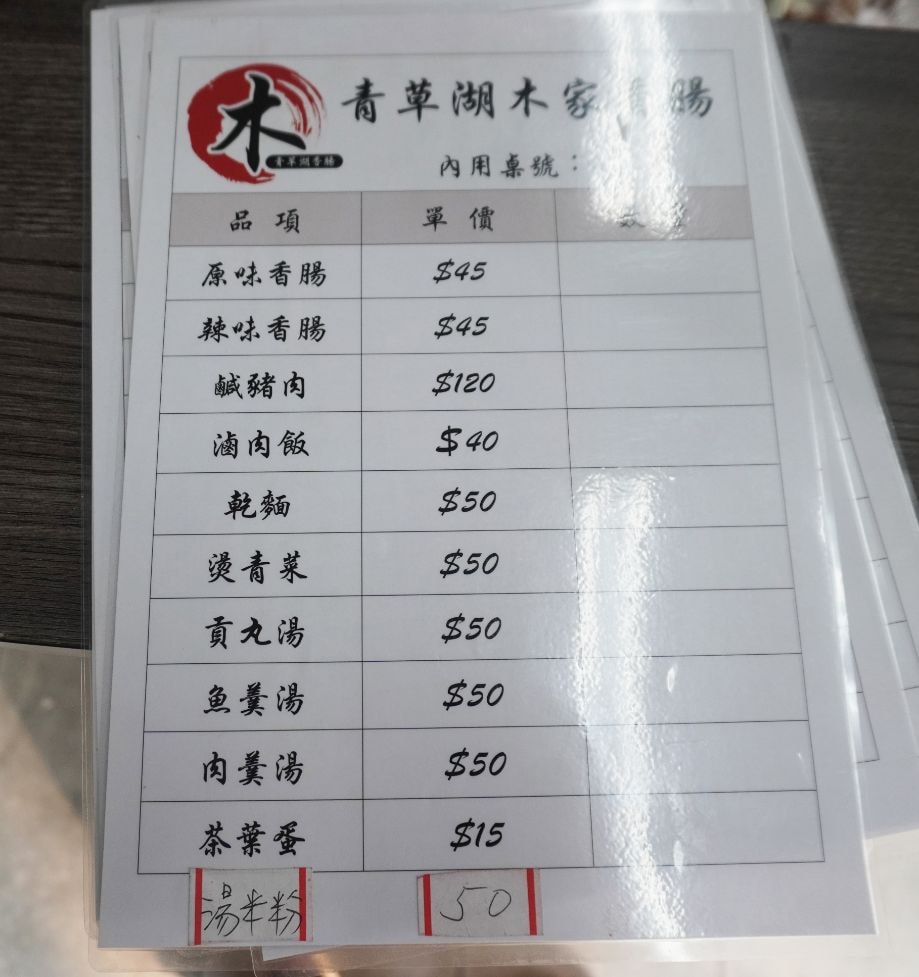 木
青草湖香腸
青草湖木家香腸
內用桌號：
品項 單價 數量
原味香腸 $45
辣味香腸 $45
鹹豬肉 $120
滷肉飯 $40
乾麵 $50
燙青菜 $50
貢丸湯 $50
魚羹湯 $50
肉羹湯 $50
茶葉蛋 $15
湯米粉 50